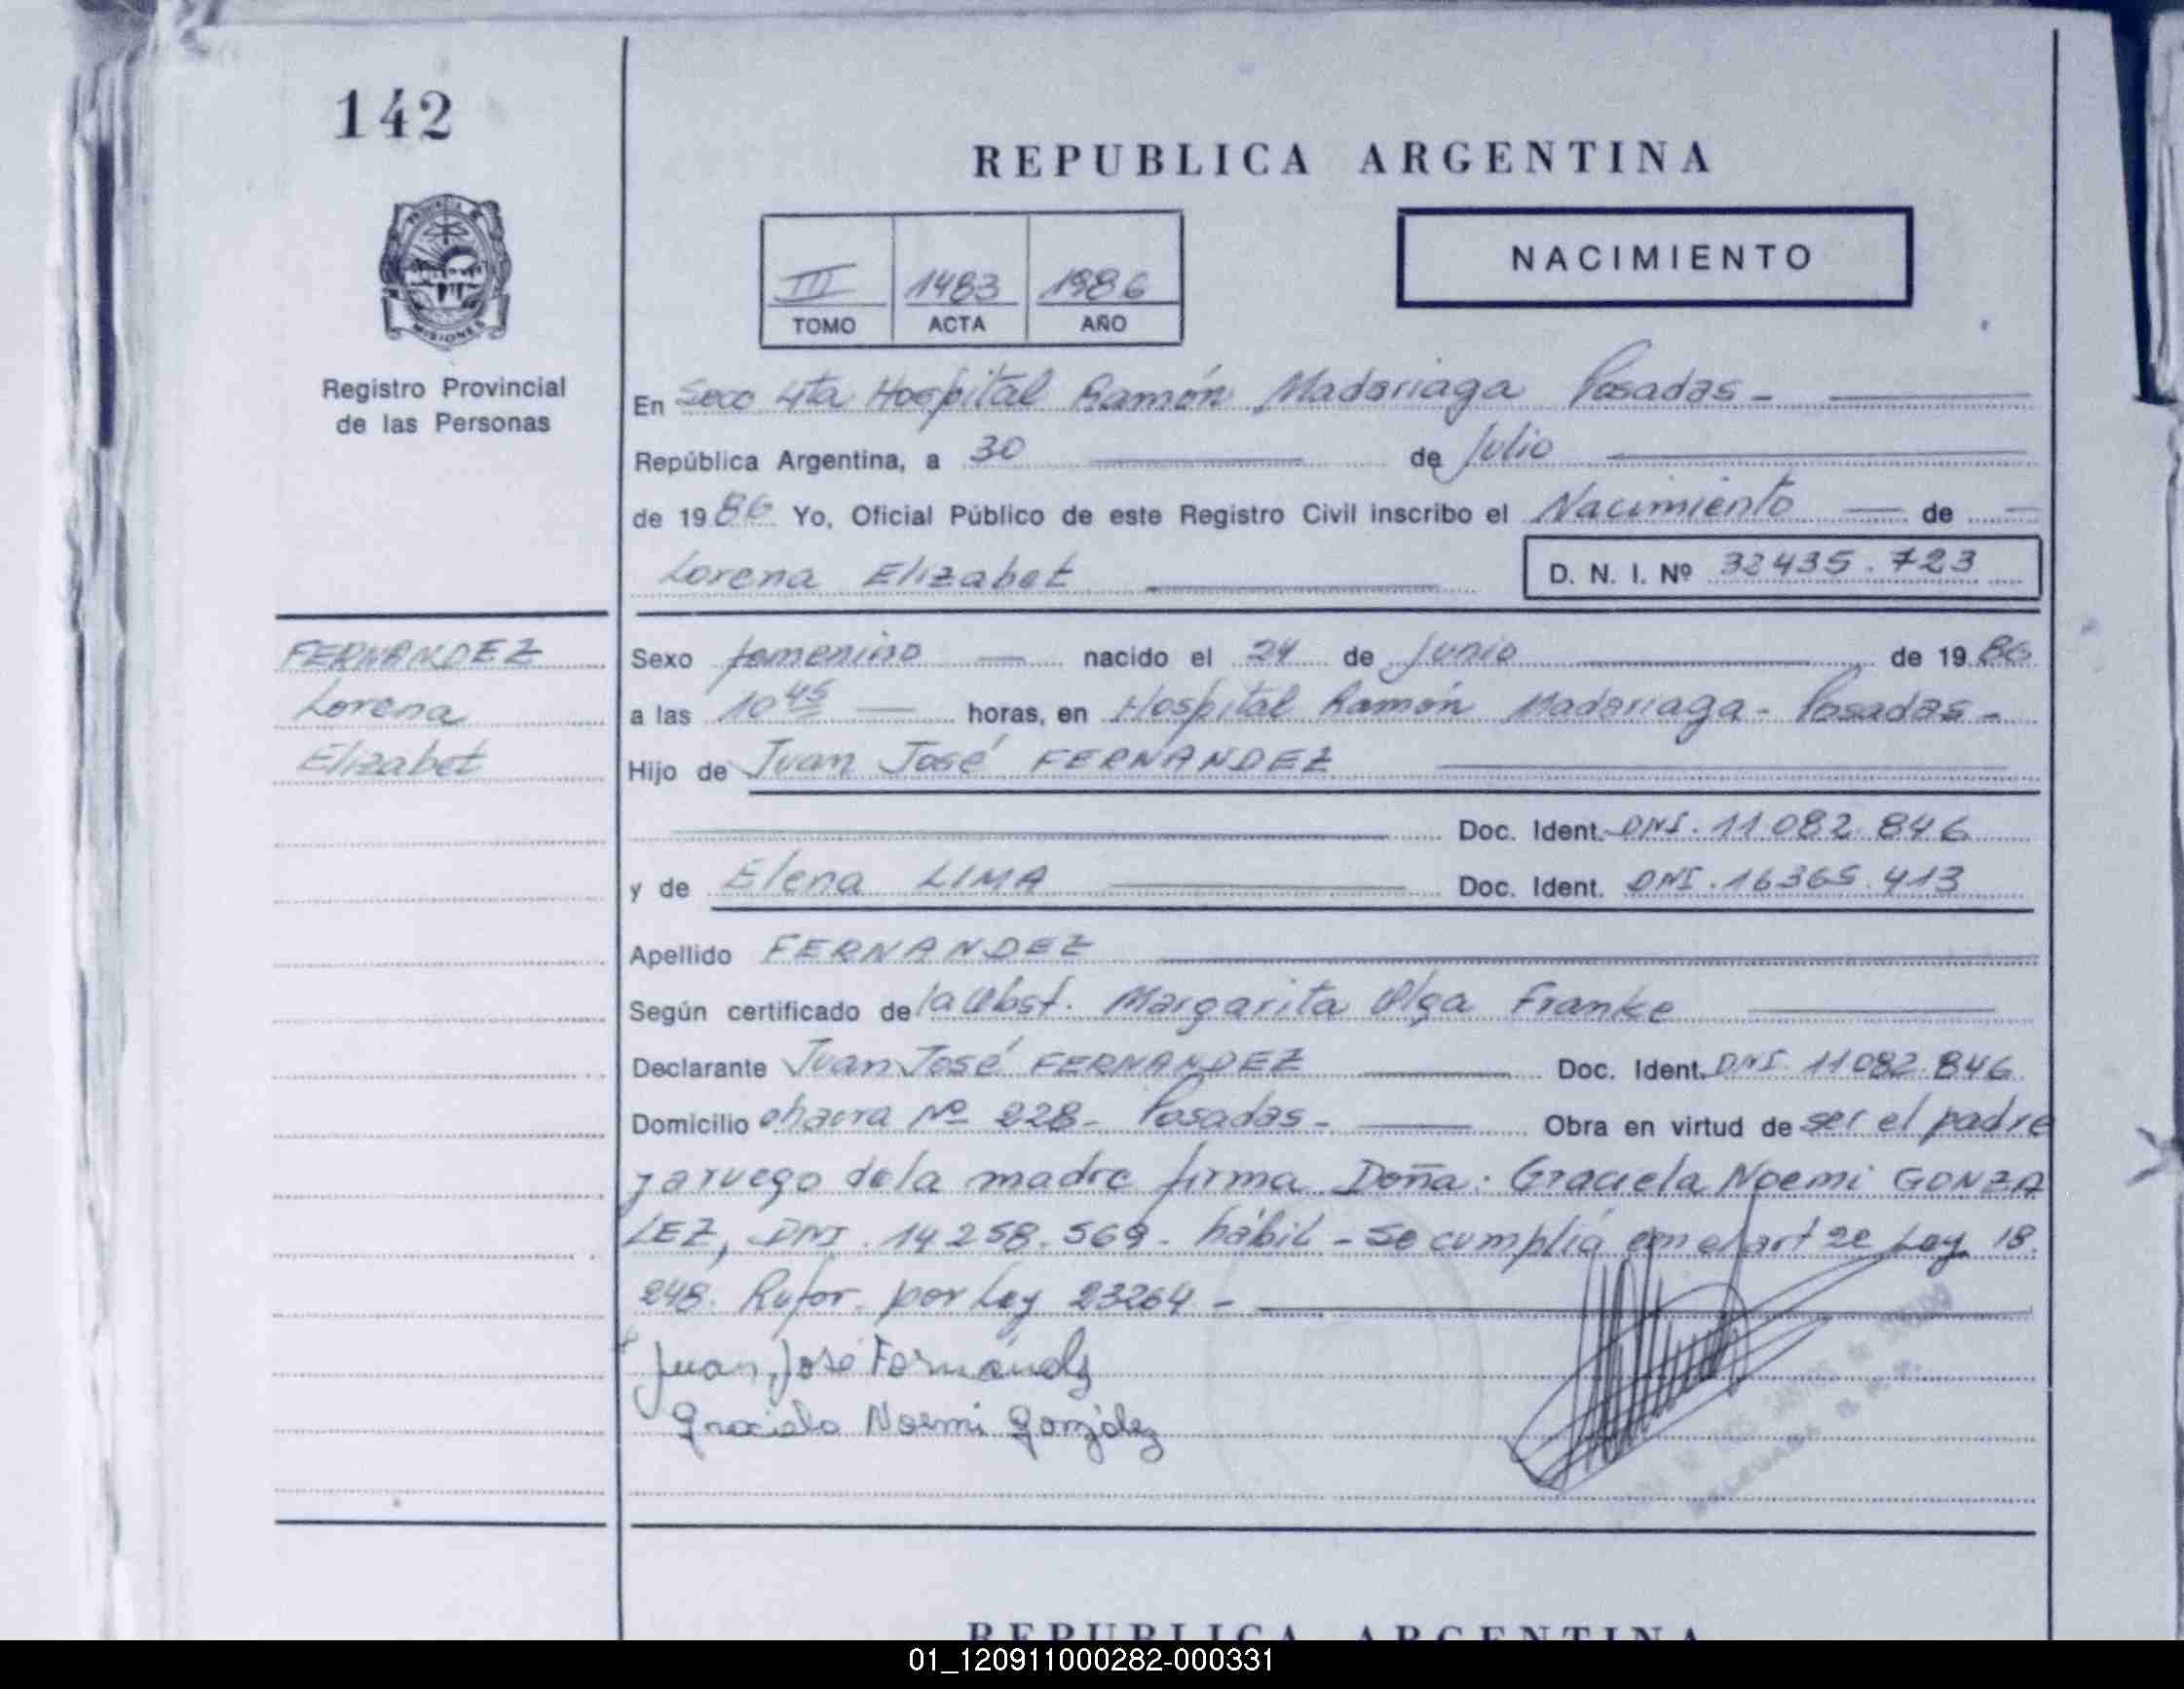 142
REPUBLICA ARGENTINA
NACIMIENTO
III 1483 1986
TOMO ACTA AÑO
PROVINCIA DE MISIONES
Registro Provincial
de las Personas
En Secc 4ta Hospital Ramón Madariaga Posadas -
República Argentina, a 30 de Julio
de 1986 Yo, Oficial Público de este Registro Civil inscribo el Nacimiento de
Lorena Elizabet D. N. I. Nº 32435.723
FERNANDEZ
Lorena
Elizabet
Sexo femenino nacido el 24 de Junio de 1986
a las 10 45 horas, en Hospital Ramón Madariaga - Posadas -
Hijo de Juan José FERNANDEZ
Doc. Ident. DNI. 11082.846
y de Elena LIMA Doc. Ident. DNI. 16365.413
Apellido FERNANDEZ
Según certificado de la Obst. Margarita Olga Franke
Declarante Juan José FERNANDEZ Doc. Ident. DNI. 11082.846
Domicilio chacra Nº 228 - Posadas - Obra en virtud de ser el padre
y a ruego de la madre firma Doña: Graciela Noemi GONZA
LEZ, DNI. 14258.569 - hábil - Se cumplió con el art 2º Ley 18.
248. Refor. por Ley 23264 -
Juan José Fernández
Graciela Noemi González
DELEGADA
REPUBLICA ARGENTINA
01_120911000282-000331